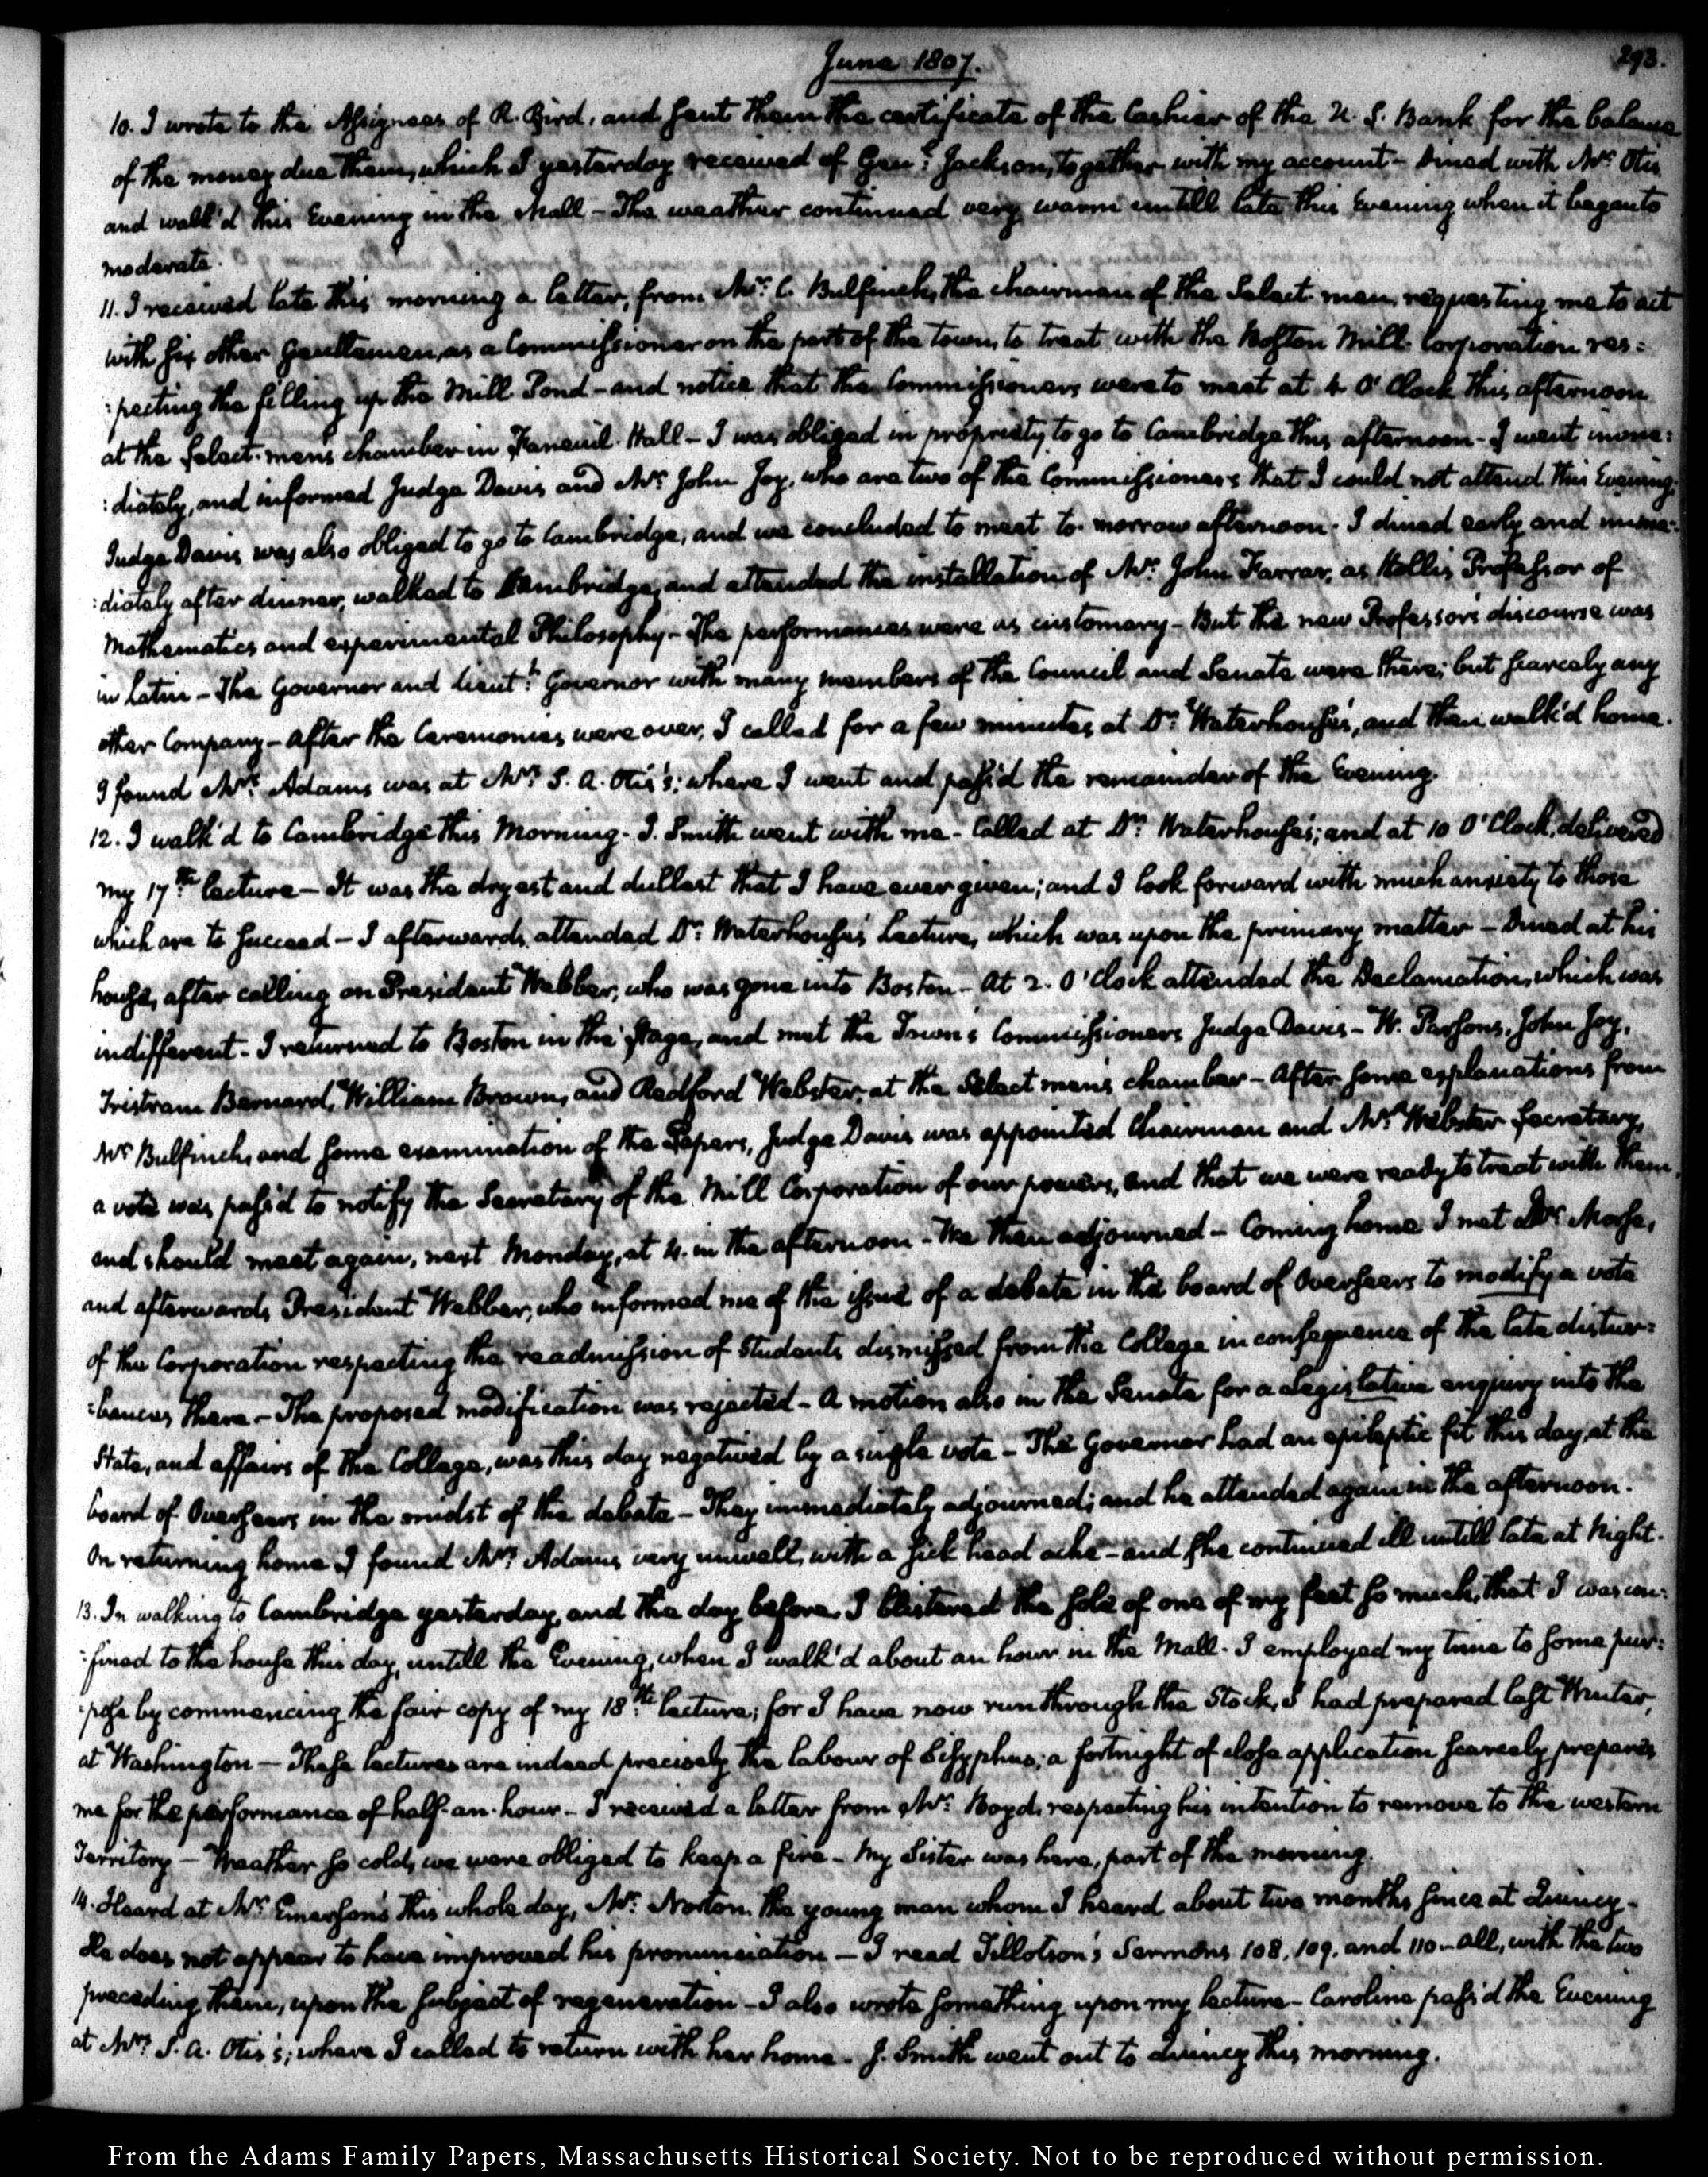 June 1807.
293.
10. I wrote to the Assignees of R. Bird, and sent them the certificate of the Cashier of the U. S. Bank for the balance
of the money due them, which I yesterday received of Genl. Jackson, together with my account - Dined with Mr. Otis
and walk'd this Evening in the Mall - The weather continued very warm untill late this Evening when it began to
moderate.
11. I received late this morning a letter, from Mr. C. Bulfinch, the chairman of the Select-men, requesting me to act
with six other Gentlemen, as a Commissioner on the part of the town, to treat with the Boston Mill Corporation res:
:pecting the filling up the Mill Pond - and notice that the Commissioners were to meet at 4 O'Clock this afternoon
at the Select-men's chamber in Faneuil-Hall - I was obliged in propriety to go to Cambridge this afternoon - I went imme:
:diately, and informed Judge Davis and Mr. John Joy, who are two of the Commissioners that I could not attend this Evening.
Judge Davis was also obliged to go to Cambridge, and we concluded to meet to-morrow afternoon. I dined early and imme:
:diately after dinner, walked to Cambridge, and attended the installation of Mr. John Farrar, as Hollis Professor of
Mathematics and experimental Philosophy - The performances were as customary - But the new Professors discourse was
in Latin - The Governor and Lieutt. Governor with many members of the Council and Senate were there; but scarcely any
other Company - After the Ceremonies were over, I called for a few minutes at Dr. Waterhouse's, and then walk'd home.
I found Mrs. Adams was at Mrs. S. A. Otis's; where I went and pass'd the remainder of the Evening.
12. I walk'd to Cambridge this Morning. J. Smith went with me - Called at Dr. Waterhouse's; and at 10 O'Clock, delivered
my 17th. lecture - It was the dryest and dullest that I have ever given; and I look forward with much anxiety to those
which are to succeed - I afterwards attended Dr. Waterhouse's Lecture, which was upon the primary matter - Dined at his
house, after calling on President Webber, who was gone into Boston - At 2. O'Clock attended the Declamation, which was
indifferent - I returned to Boston in the Stage, and met the Town's Commissioners Judge Davis - W. Parsons, John Joy,
Tristram Barnard, William Brown, and Redford Webster, at the Select men's chamber - After some explanations from
Mr. Bulfinch, and some examination of the Papers, Judge Davis was appointed Chairman and Mr. Webster Secretary,
a vote was pass'd to notify the Secretary of the Mill Corporation of our powers, and that we were ready to treat with them,
and should meet again, next Monday, at 4. in the afternoon - We then adjourned - Coming home I met Dr. Morse,
and afterwards President Webber, who informed me of the issue of a debate in the board of Overseers to modify a vote
of the Corporation respecting the readmission of Students dismissed from the College in consequence of the late distur:
:bances there - The proposed modification was rejected - A motion also in the Senate for a Legislative enquiry into the
State, and affairs of the College, was this day negatived by a single vote - The Governor had an epileptic fit this day, at the
board of Overseers in the midst of the debate - They immediately adjourned; and he attended again in the afternoon.
On returning home I found Mrs. Adams very unwell, with a sick head ache - and she continued ill untill late at Night.
13. In walking to Cambridge yesterday, and the day before, I blistered the sole of one of my feet so much, that I was con:
:fined to the house this day, untill the Evening, when I walk'd about an hour in the Mall. I employed my time to some pur:
:pose by commencing the fair copy of my 18th. lecture; for I have now run through the Stock, I had prepared last Winter,
at Washington - These lectures are indeed precisely the labour of Sisyphus; a fortnight of close application scarcely prepares
me for the performance of half-an-hour - I received a letter from Mr. Boyd, respecting his intention to remove to the western
Territory - Weather so cold, we were obliged to keep a fire - My Sister was here, part of the morning.
14. Heard at Mr. Emerson's this whole day, Mr. Norton, the young man whom I heard about two months since at Quincy -
He does not appear to have improved his pronunciation - I read Tillotson's Sermons 108, 109, and 110 - all, with the two
preceding them, upon the subject of regeneration - I also wrote something upon my lecture - Caroline pass'd the Evening
at Mrs. S. A. Otis's; where I called to return with her home. J. Smith went out to Quincy this morning.
From the Adams Family Papers, Massachusetts Historical Society. Not to be reproduced without permission.